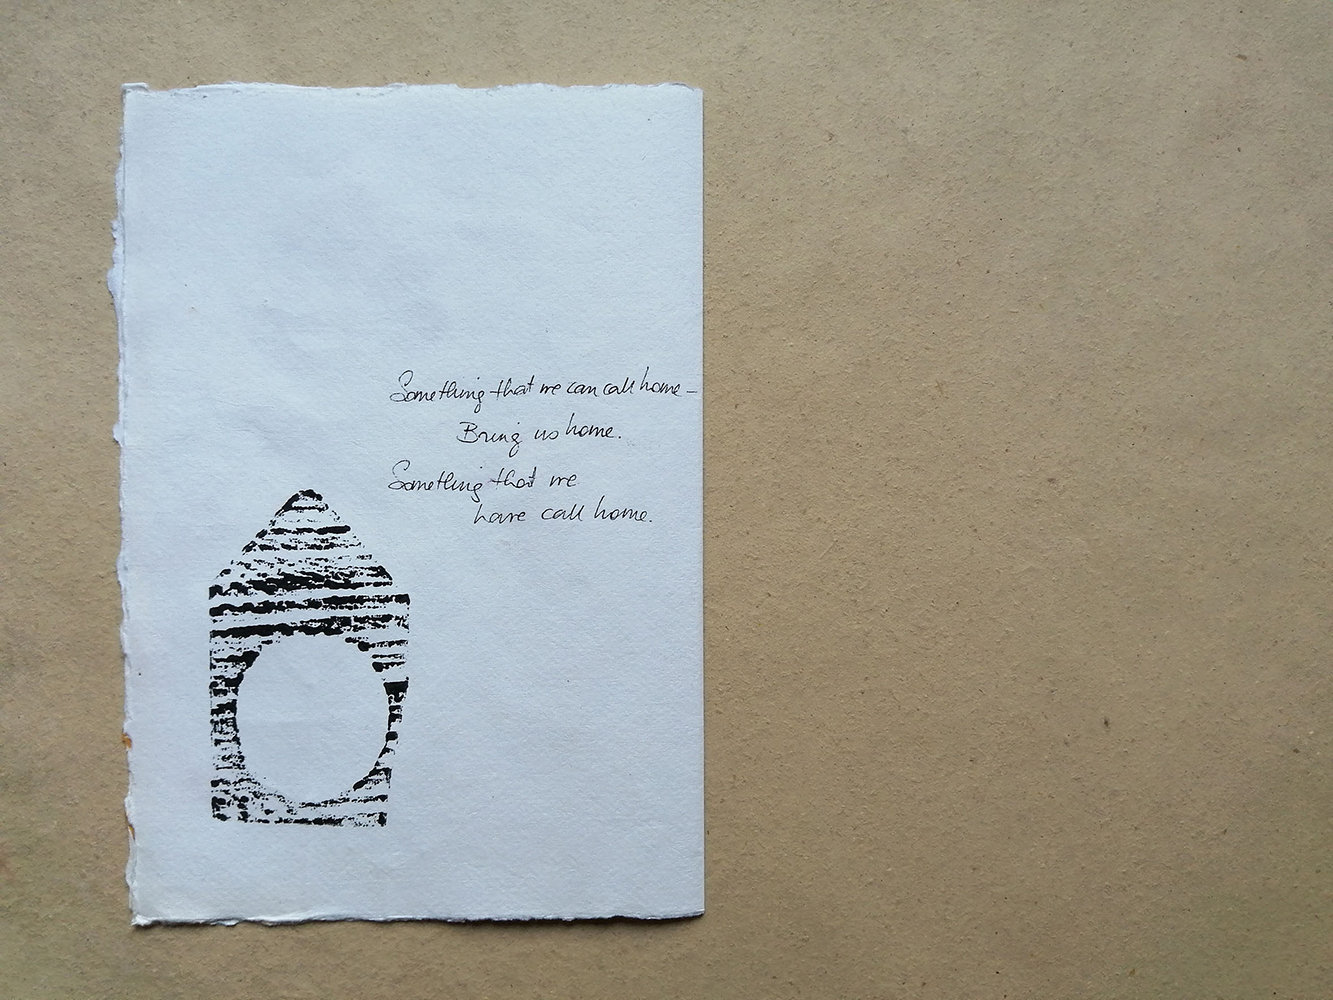 Something that we can call home –
Bring us home.
Something that we
have call home.